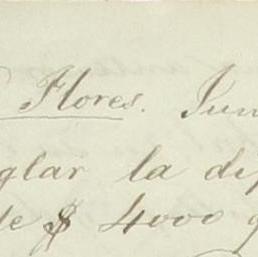 Flores. Jun
glar la dip
de $ 4000 q